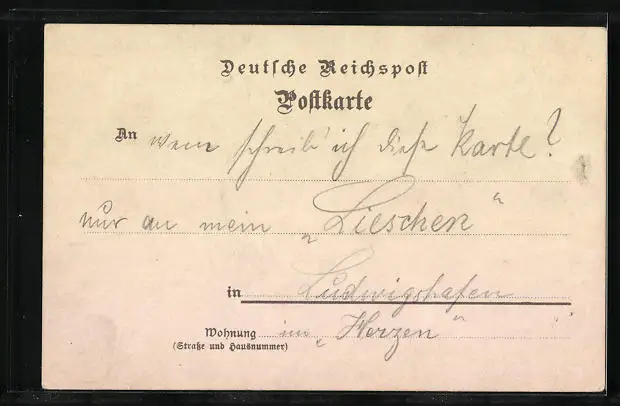 Deutsche Reichspost
Postkarte
An wem schreib' ich diese Karte?
nur an mein „Lieschen“
in Ludwigshafen
Wohnung im „Herzen“
(Straße und Hausnummer)